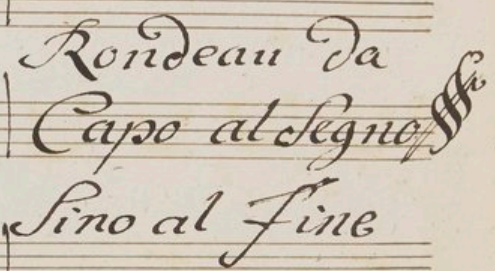 Rondeau da
Capo al Segno
Sino al Fine